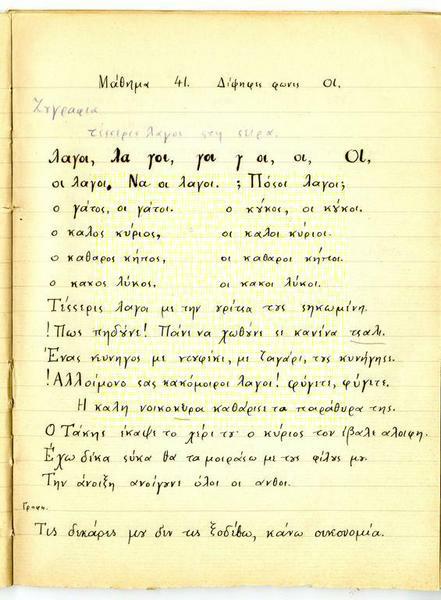 Μάθημα 41. Δίψηφες φωνες ΟΙ.
Ζυγραφια
τέσσερις λαγοι στη σειρά.
λαγοι, λα γοι, γοι γ οι, οι, ΟΙ,
οι λαγοι. Να οι λαγοι. ; Πόσοι λαγοι;
ο γάτος, οι γάτοι. ο κύκος, οι κύκοι.
ο καλος κύριος, οι καλοι κύριοι.
ο καθαρος κήπος, οι καθαροι κήποι.
ο κακος λύκος, οι κακοι λύκοι.
Τέσσερις λαγοι με την μρίτσα τυς σηκωμένη.
!Πως πηδυνε! Πάνι να χωθυνε σε κανένα τσαλι.
Ένας κυνηγος με ντυφέκι, με ζαγάρι, τυς κυνήγησε.
!Αλλοίμονο σας κακόμοιροι λαγοι! φύγετε, φύγετε.
Η καλη νοικοκυρα καθάρισε τα παράθυρα της.
Ο Τάκης έκαψε το χέρι τυ ο κύριος τον έβαλε αλοιφη.
Έχω δέκα σύκα θα τα μοιράσω με τυς φίλυς μυ.
Την άνοιξη ανοίγυνε όλοι οι ανθοι.
Γραφη.
Τις δεκάρες μυ δεν τις ξοδέβω, κάνω οικονομία.